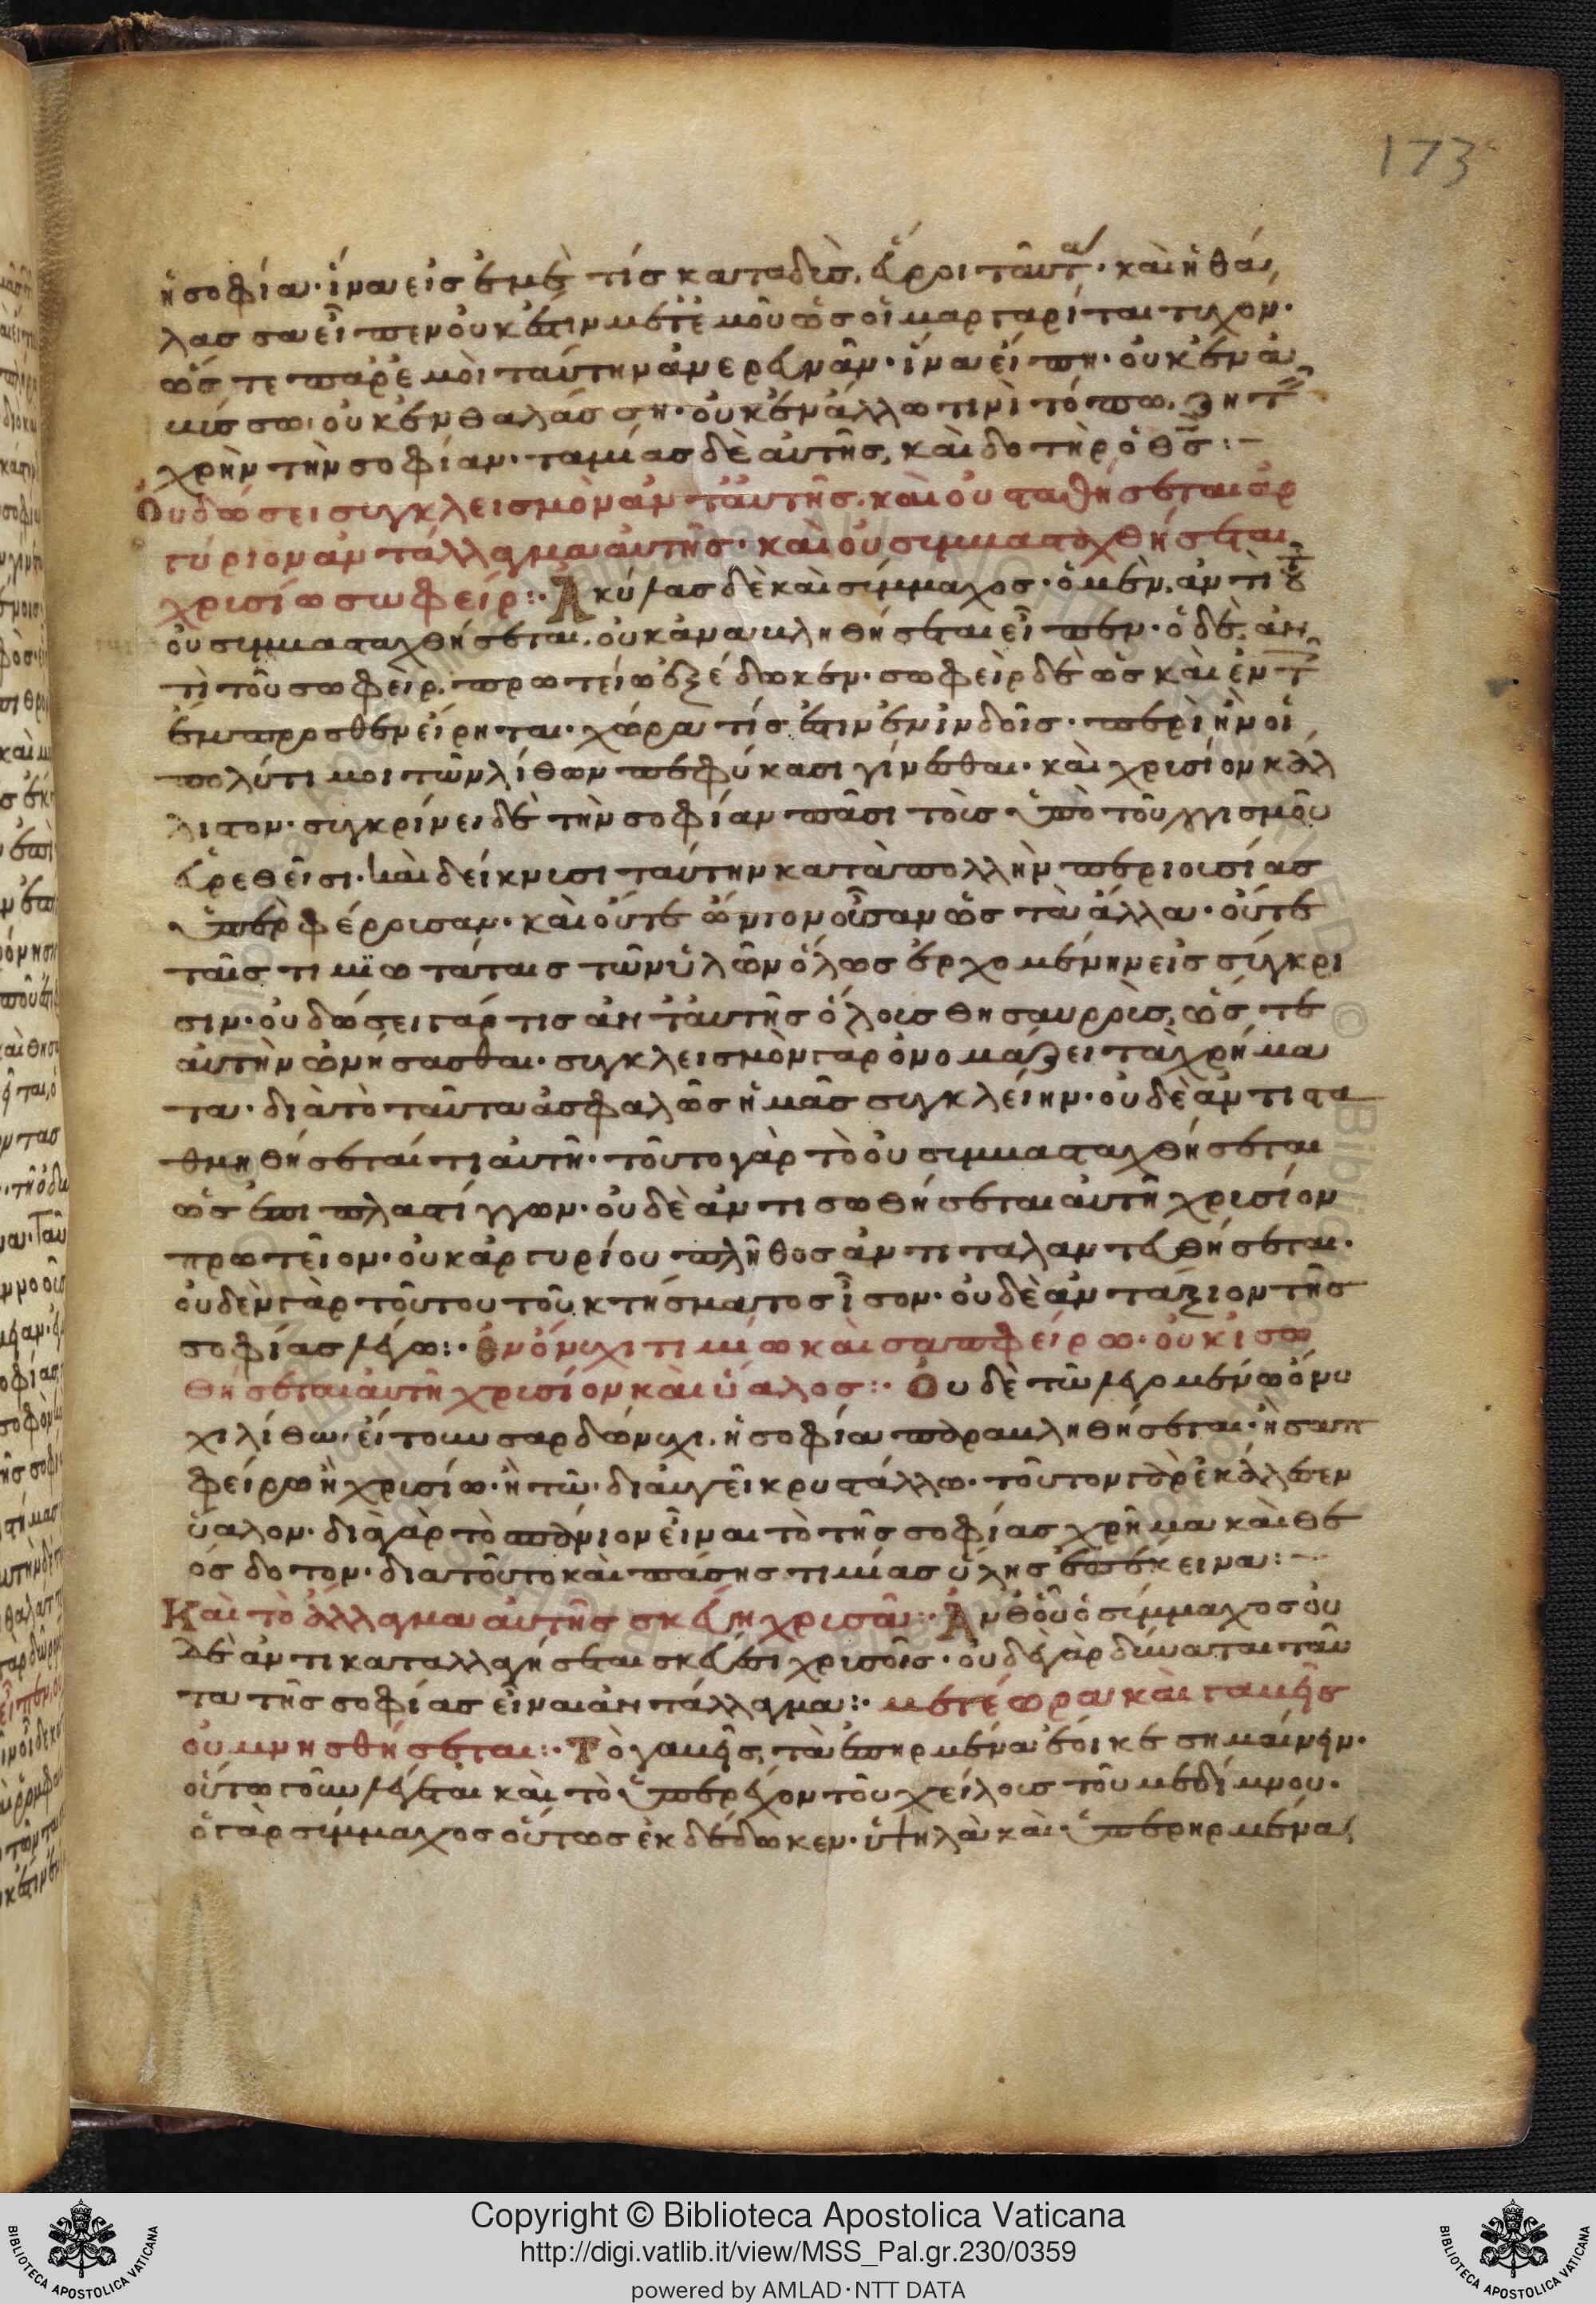 173
ἡ σοφία· ἵνα εἰς ἐμὲ τίς καταδὺς, εὕροι ταύτ· καὶ ἡ θά
λασσα εἶπεν οὐκ ἔστιν μετ' ἐμοῦ ὡς οἱ μαργαρίται τυχον·
ὥς τε παρ' ἐμοὶ ταύτην ἀνερευνᾶν· ἵνα εἴπη· οὐκ ἐν ἀ
βύσσω· οὐκ ἐν θαλάσση· οὐκ ἐν ἄλλω τινὶ τόπω, ζητ
χρὴν τὴν σοφίαν· ταμίας δὲ αὐτῆς, καὶ δοτὴρ ὁ θς:–
Οὐ δώσει συγκλεισμὸν ἀντ' αὐτῆς· καὶ οὐ σταθήσεται ἀρ
γύριον ἀντάλλαγμα αὐτῆς· καὶ οὐ συμμασταχθήσεται
χρυσίω σωφείρ:· Ἀκύλας δὲ καὶ σύμμαχος· ὁ μὲν, ἀντὶ τοῦ
οὐ συμμασταχθήσεται, οὐκ ἀναβληθήσεται εἶπεν· ὁ δὲ, ἀν
τὶ τοῦ σωφεὶρ, πρωτείω ἐξέδωκεν· σωφεὶρ δὲ ὡς καὶ ἐν τ
ἔμπροσθεν εἴρηται· χώρα τίς ἐστιν ἐν ἰνδοῖς· περὶ ἣν οἱ
πολύτιμοι τῶν λίθων πεφύκασι γίνεσθαι· καὶ χρυσίον κάλ
λιστον· συγκρίνει δὲ τὴν σοφίαν πᾶσι τοῖς ὑπὸ τοῦ λογισμοῦ
εὑρεθεῖσι· καὶ δείκνυσι ταύτην κατὰ πολλὴν περιουσίας
ὑπερφέρουσαν· καὶ οὔτε ὤνιον οὖσαν ὡς τὰ ἄλλα· οὔτε
ταῖς τιμιωτάταις τῶν ὑλῶν ὅλως ἐρχομένην εἰς σύγκρι
σιν· οὐ δώσει γάρ τις ἀντ' αὐτῆς ὅλους θησαυροὺς, ὥς τε
αὐτὴν ὠνήσασθαι· συγκλεισμὸν γὰρ ὀνομάζει τὰ χρήμα
τα· διὰ τὸ ταῦτα ἀσφαλῶς ἡμᾶς συγκλείειν· οὐδὲ ἀντιστα
θμηθήσεταί τι αὐτῆ· τοῦτο γὰρ τὸ οὐ συμμασταχθήσεται
ὡς ἐπὶ πλαστίγγων· οὐδὲ ἀντισωθήσεται αὐτῆ χρυσίον
πρωτεῖον· οὐκ ἀργυρίου πλῆθος ἀντιταλαντευθήσεται·
οὐδὲν γὰρ τούτου τοῦ κτήσματος ἴσον· οὐδὲ ἀντάξιον τῆς
σοφίας λέγω:· Ἐν ὄνυχι τιμίω καὶ σαπφείρω· οὐκ ἰσω
θήσεται αὐτῆ χρυσίον καὶ ὕαλος:· Οὐδὲ τῶ λεγομένω ὄνυ
χι λίθω, εἴτουν σαρδώνυχι, ἡ σοφία παραβληθήσεται· ἢ σαπ
φείρω ἢ χρυσίω· ἢ τῶ διαυγεῖ κρυστάλλω· τοῦτον γὰρ ἐκάλεσεν
ὕαλον· διὰ γὰρ τὸ οὐράνιον εἶναι τὸ τῆς σοφίας χρῆμα καὶ θε
όσδοτον· διὰ τοῦτο καὶ πάσης τιμίας ὕλης ἐπέκεινα:–
Καὶ τὸ ἄλλαγμα αὐτῆς σκεύη χρυσᾶ:· Ἀνθ' οὗ ὁ σύμμαχος οὐ
δὲ ἀντικαταλλαγήσεται σκεύεσι χρυσοῖς· οὐδὲ γὰρ δύναται ταῦ
τα τῆς σοφίας εἶναι ἀντάλλαγμα:· μετέωρα καὶ γαμεὶς
οὐ μνησθήσεται:· Τὸ γαμεὶς, τὰ ἐπηρμένα ἔοικε σημαίνειν·
οὕτω γοῦν λέγεται καὶ τὸ ὑπερέχον τοῦ χείλους τοῦ μεδίμνου·
ὁ γὰρ σύμμαχος οὕτως ἐκδέδωκεν· ὑψηλὰ καὶ ὑπερηρμένα
Copyright © Biblioteca Apostolica Vaticana
http://digi.vatlib.it/view/MSS_Pal.gr.230/0359
powered by AMLAD·NTT DATA
BIBLIOTECA APOSTOLICA VATICANA
BIBLIOTECA APOSTOLICA VATICANA